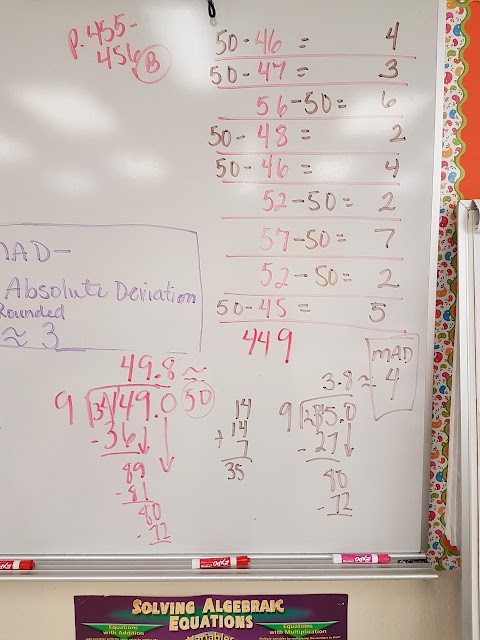 p. 455-
456 B
50-46 = 4
50-47 = 3
56-50= 6
50-48 = 2
50-46 = 4
52-50= 2
57-50= 7
52-50= 2
50-45 = 5
449
MAD-
Absolute Deviation
Rounded
≈ 3
49.8 ≈
50
9 449.0
-36
89
-81
80
-72
14
14
+ 7
35
3.8 ≈
MAD
4
9 35.0
-27
80
-72
EXPO
EXPO
EXPO
SOLVING ALGEBRAIC
EQUATIONS
Equations
with Addition
Equations
with Multiplication
Variables